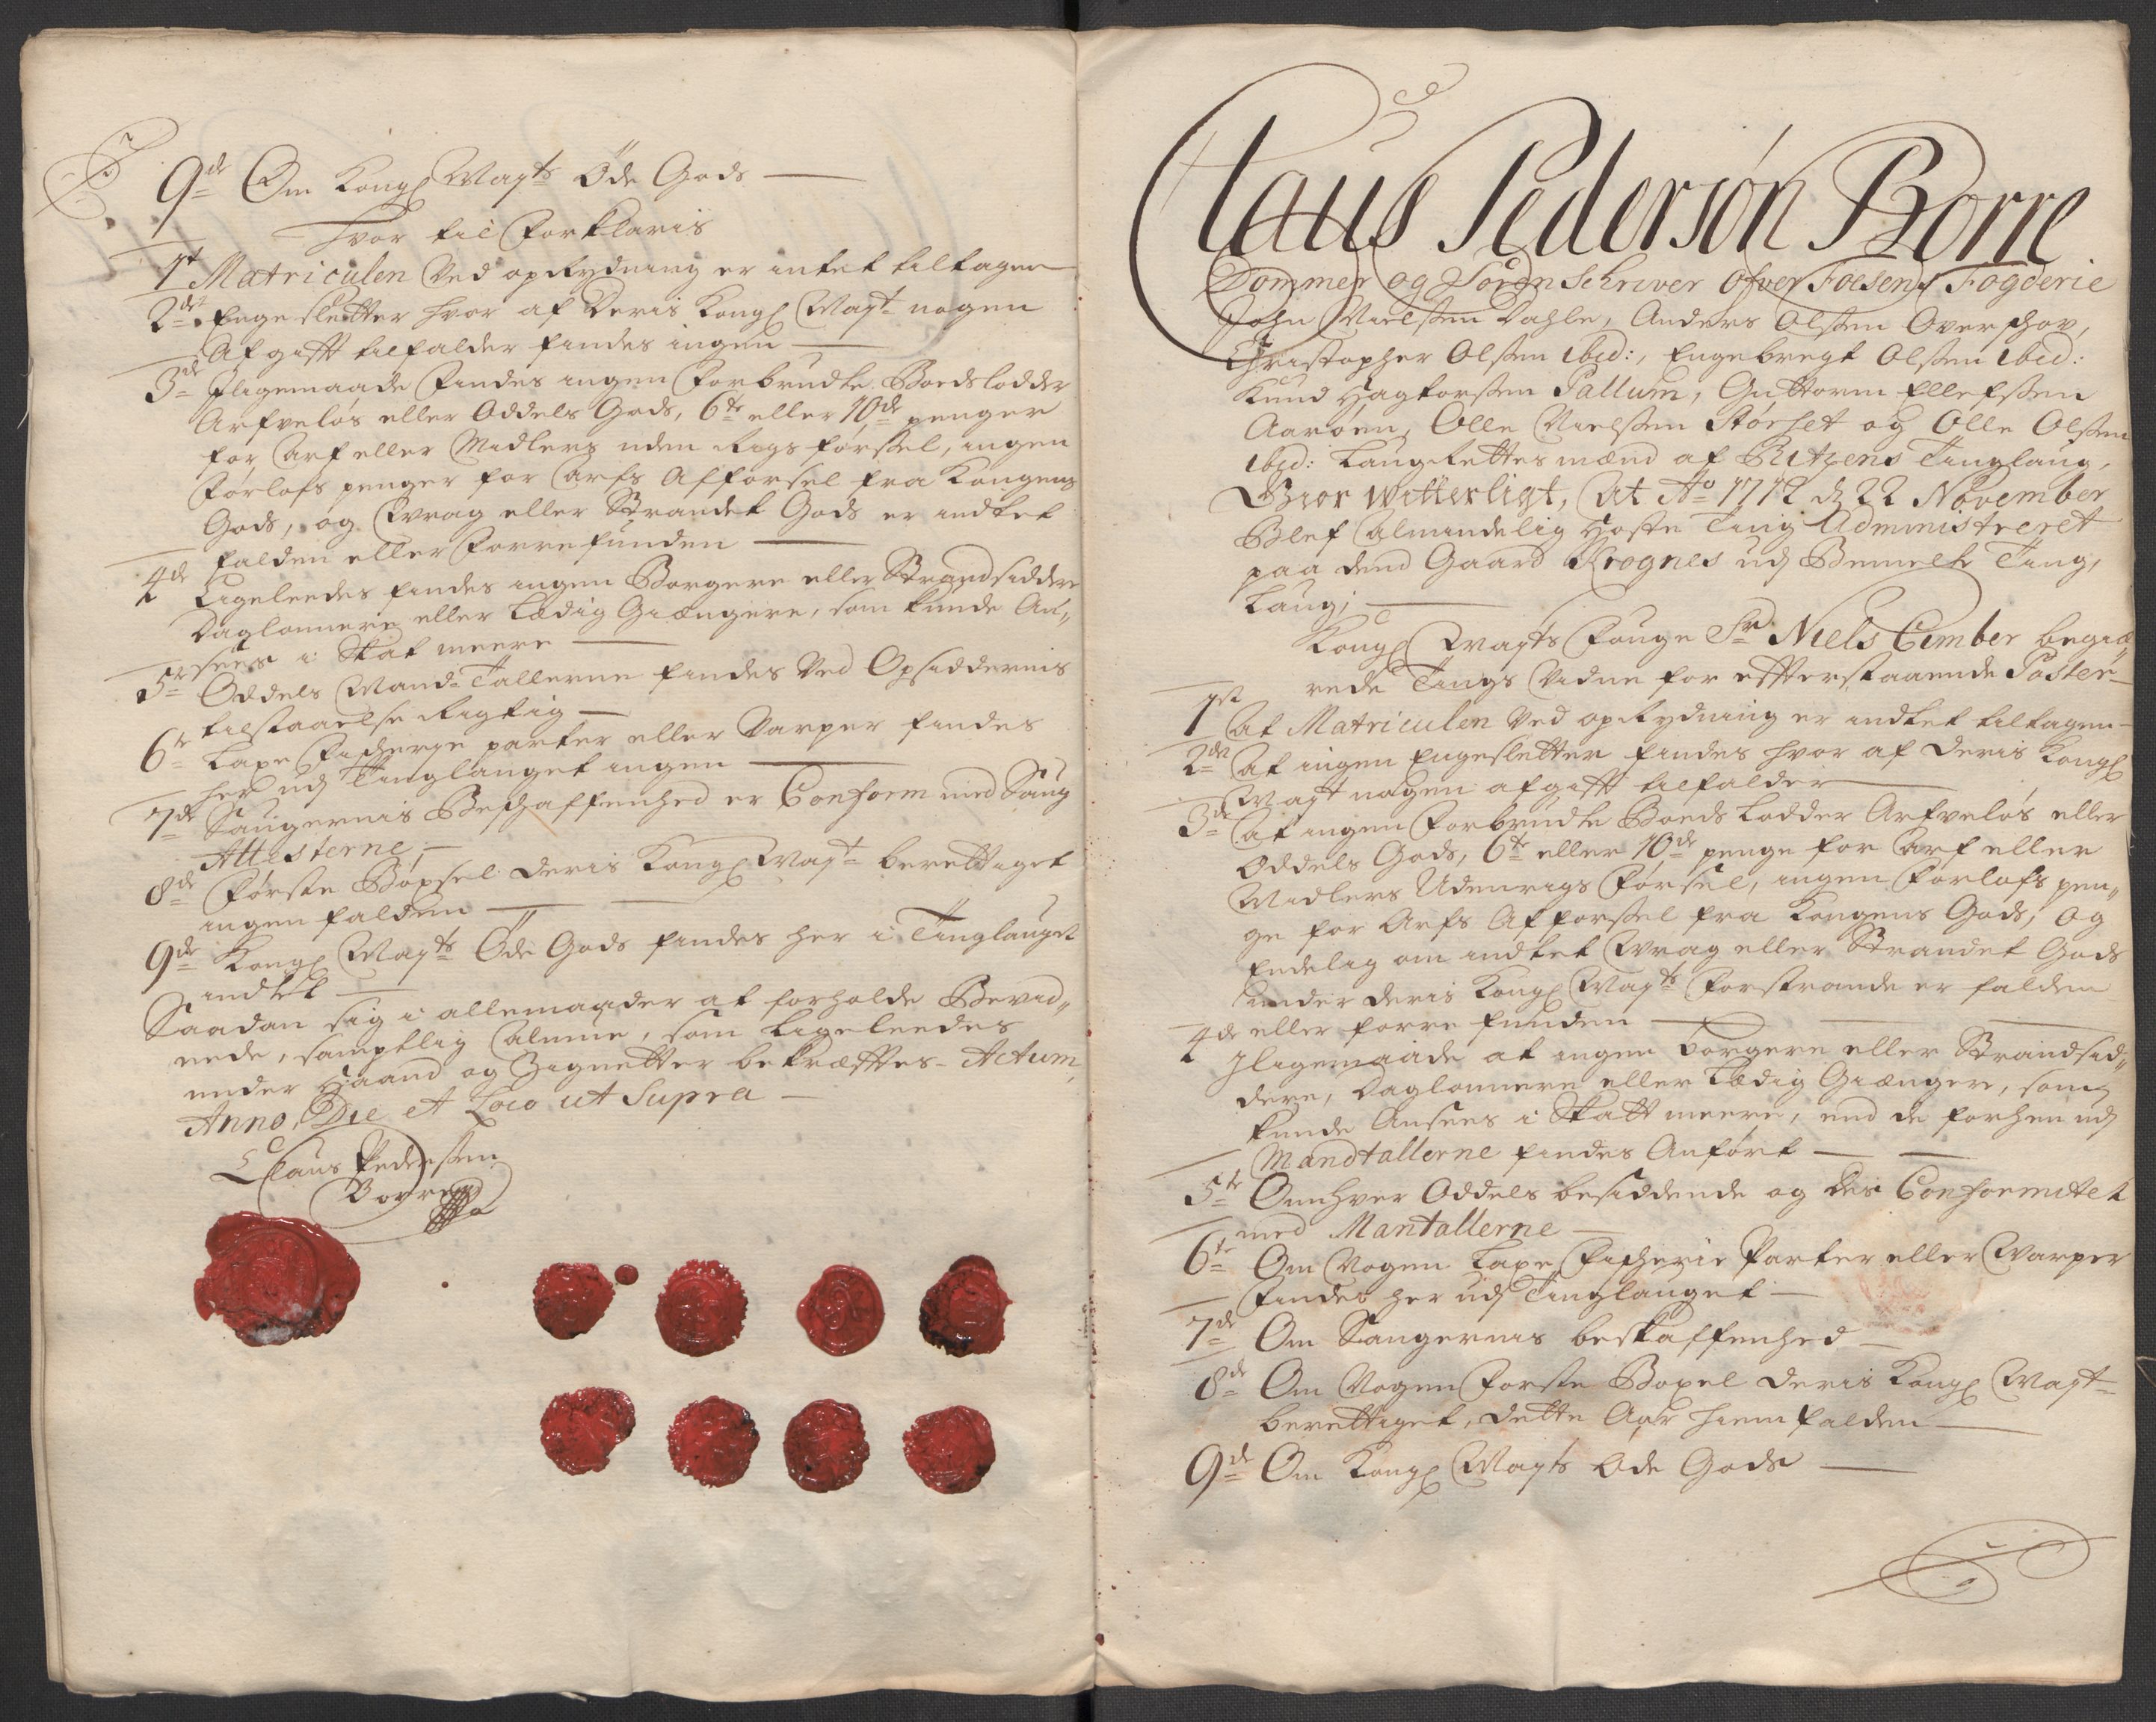 9de Om Kongl Mayts Öde Gods
hvor til forklaris
1t Matriculen Ved oprydning er intet tiltagen
2de Enge sletter hvor af Deris Kongl Mayt nogen
Afgifft tilfalder findes ingen
3de Iligemaade findes ingen forbrudte Boeds lodder
Arfveløs eller Oddels Gods, 6te eller 10de penger
for Arf eller Midlers uden Rigs førsel, ingen
forlofs penger for Arfs Afførsel fra Kongens
Gods, og Wrag eller Strandet Gods er indtet
falden eller forrefunden
4de Ligeleedes findes ingen Borgere eller Strandsiddere
Daglønnere eller Lædig Giængere, som kunde An„
sees i Skat meere
5te Oddels Mand-Tallerne findes Ved Opsiddernis
tilstaaelse Rigtig
6te Laxe Fischerje parter eller Varper findes
her udj Tinglauget ingen
7de Saugernis Beschaffenhed er Conform med Saug
Attesterne,
8de Første Böxsel Deris Kongl Mayt berettiget
ingen falden
9de Kongl Mayts Öde Gods findes her i Tinglauget
indtet
Saadan sig i allemaader at forholde Bevid„
nede, samptlig Almue, som ligeleedes
under Haand og Zignetter bekræfftes. Actum
Anno, Die et Loco ut Supra
Claus Pederssen
Borre
Claus Pedersøn Borre
Dommer og Soren Schriver Ofver Foesens Fogderie
John Nielssen Dahle, Anders Olssen Overhov,
Christopher Olssen ibid:, Engebregt Olssen ibid:
Knud Hagtorssen Pallum, Guttorm Ellefssen
Aaroen, Olle Nielssen Størset og Olle Olssen
ibid: Laugrettes mænd af Bitzens Tinglaug,
Giør witterligt, At Ao 1712 d 22 November
Blef Almindelig Høste Ting Administreret
paa dend Gaard Krognes udj Bemelte Ting,
Laug;
Kongl Mayts Fouge Sr Niels Cimber begiæ„
rede Tings Vidne for effterstaaende Poster
1st At Matriculen Ved oprydning er indtet tiltagen
2den At ingen Engesletter findes hvor af Deris Kongl
Mayt nogen afgifft tilfalder
3de At ingen forbrudte Boeds Lodder Arfveløs eller
Oddels Gods, 6te eller 10de penge for Arf eller
Midlers Udenrigs førsel, ingen forlofs pen„
ge for Arfs Afførsel fra Kongens Gods, og
Endelig om indtet Wrag eller Strandet Gods
under Deris Kongl Mayts forstrande er falden
eller forre funden
4de Iligemaade at ingen borgere eller Strandsid„
dere, Daglønnere eller Lædig Giængere, som
kunde Ansees i Skatt meere, end de forhen udj
Mandtallerne findes Anført
5te Om hver Oddels besiddende og des Conformitet
med Mantallerne
6te Om Nogen Laxe Fischerie Parter eller Warper
findes her udj Tinglauget
7de Om Saugernis beskaffenhed
8de Om Nogen Første Boxel Deris Kongl Mayt
berettiget, dette Aar hiemfalden
9de Om Kongl Mayts Øde Gods